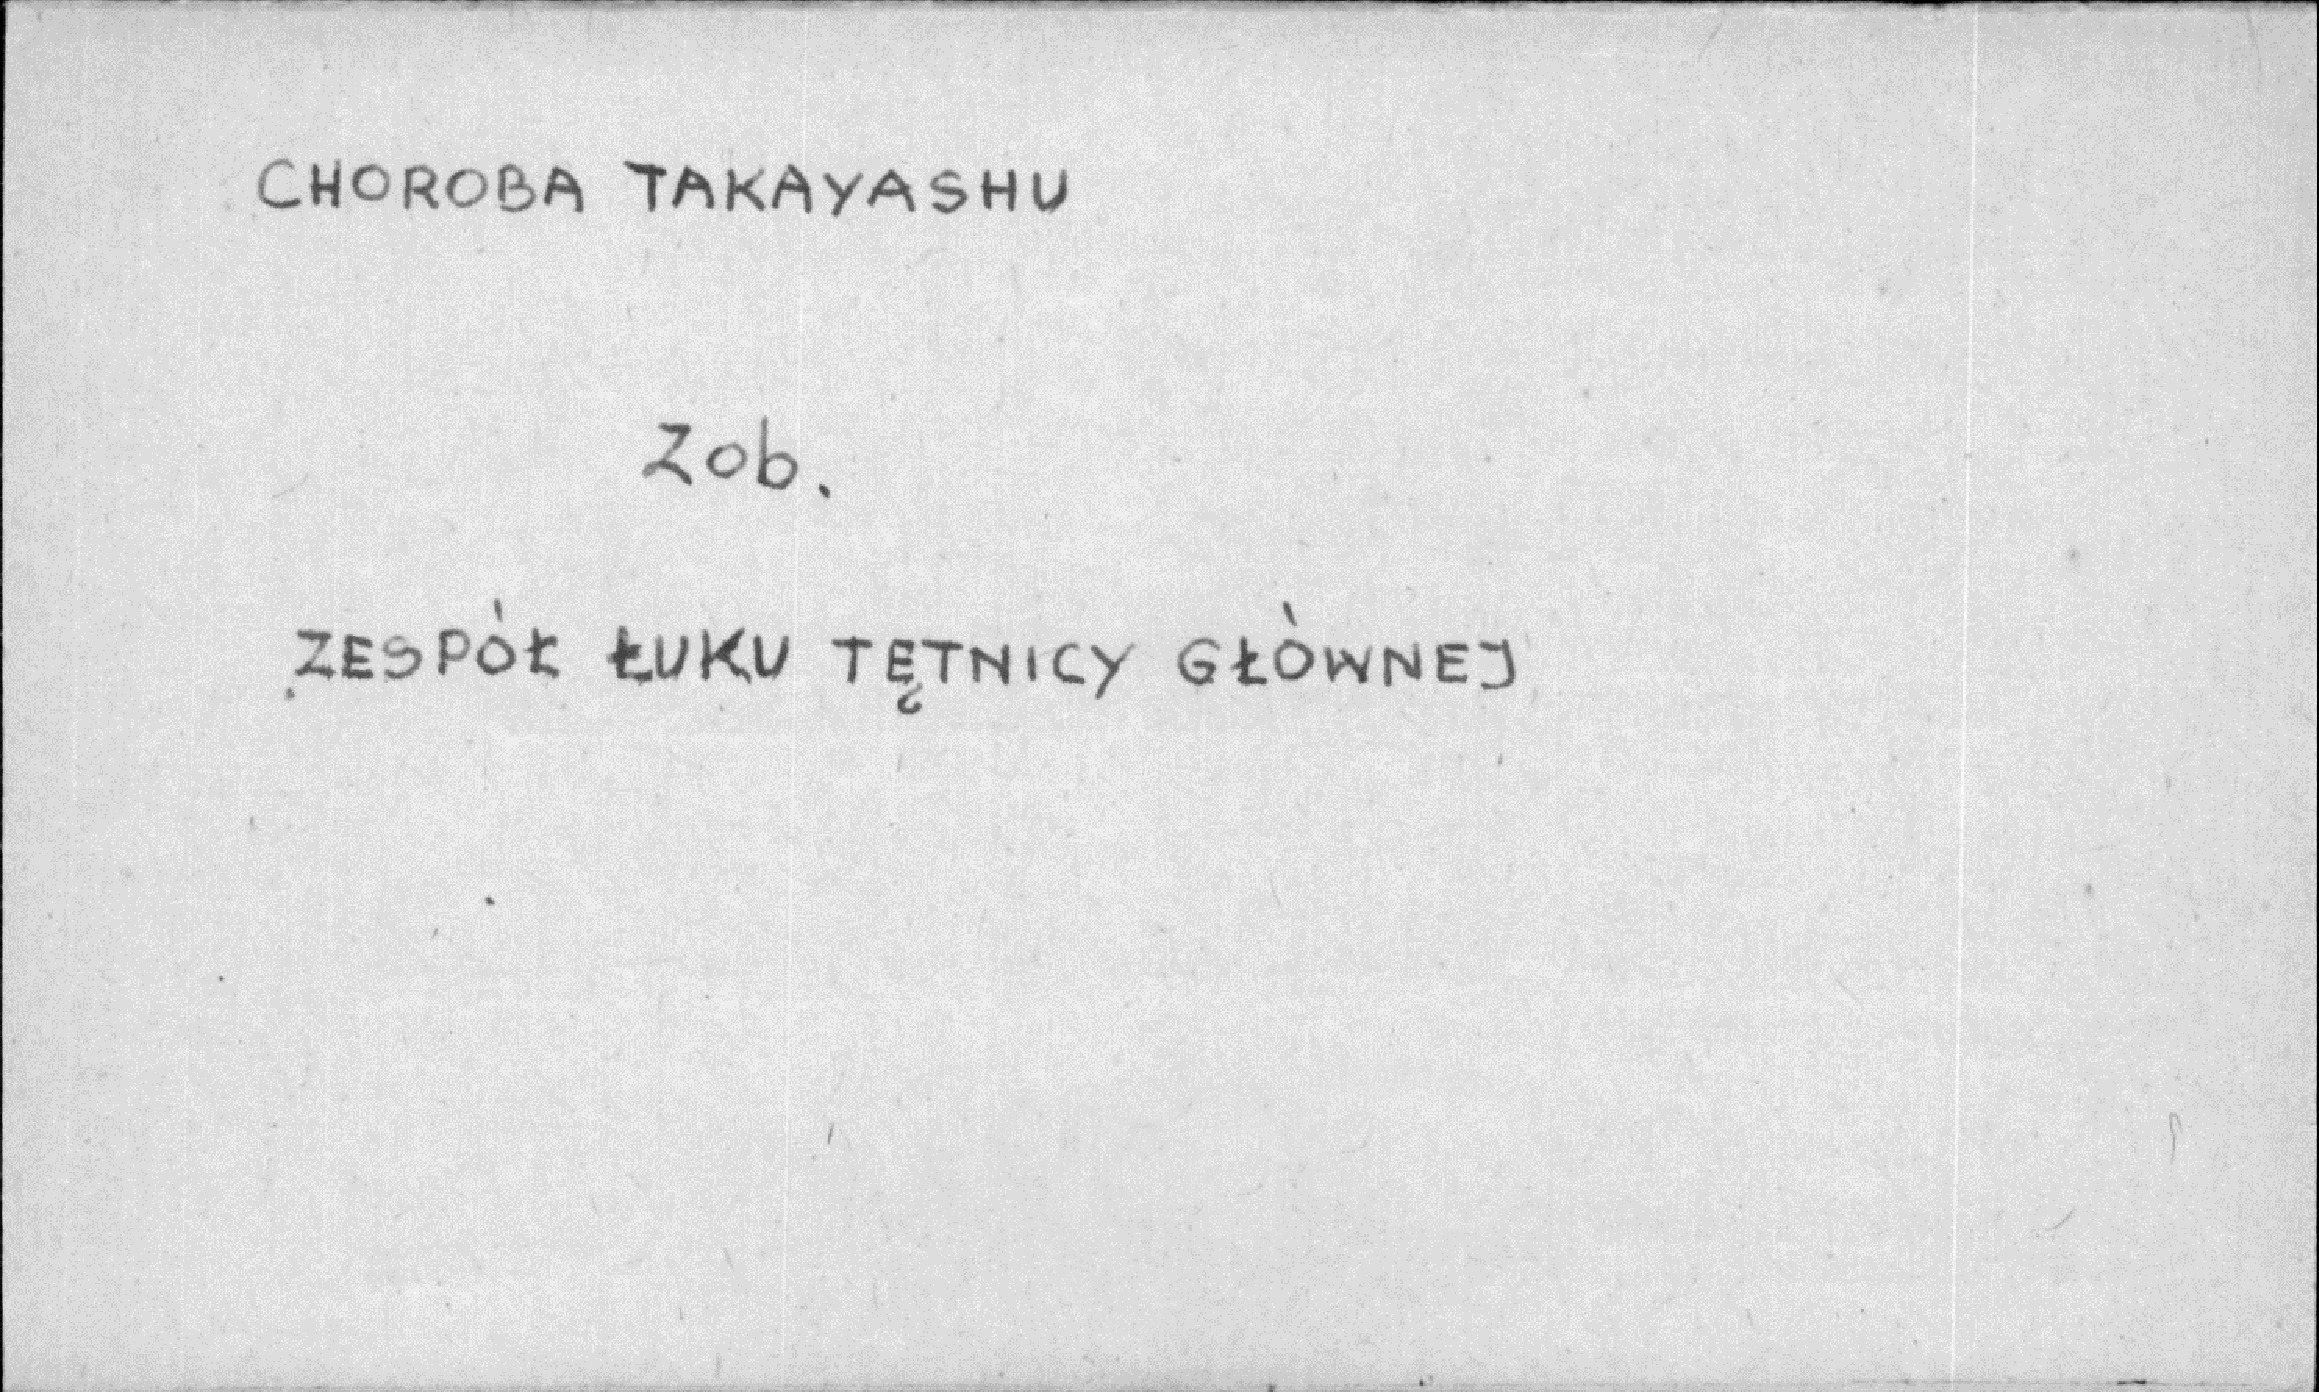 CHOROBA TAKAYASHU
Zob.
ZESPÓŁ ŁUKU TĘTNICY GŁÓWNEJ